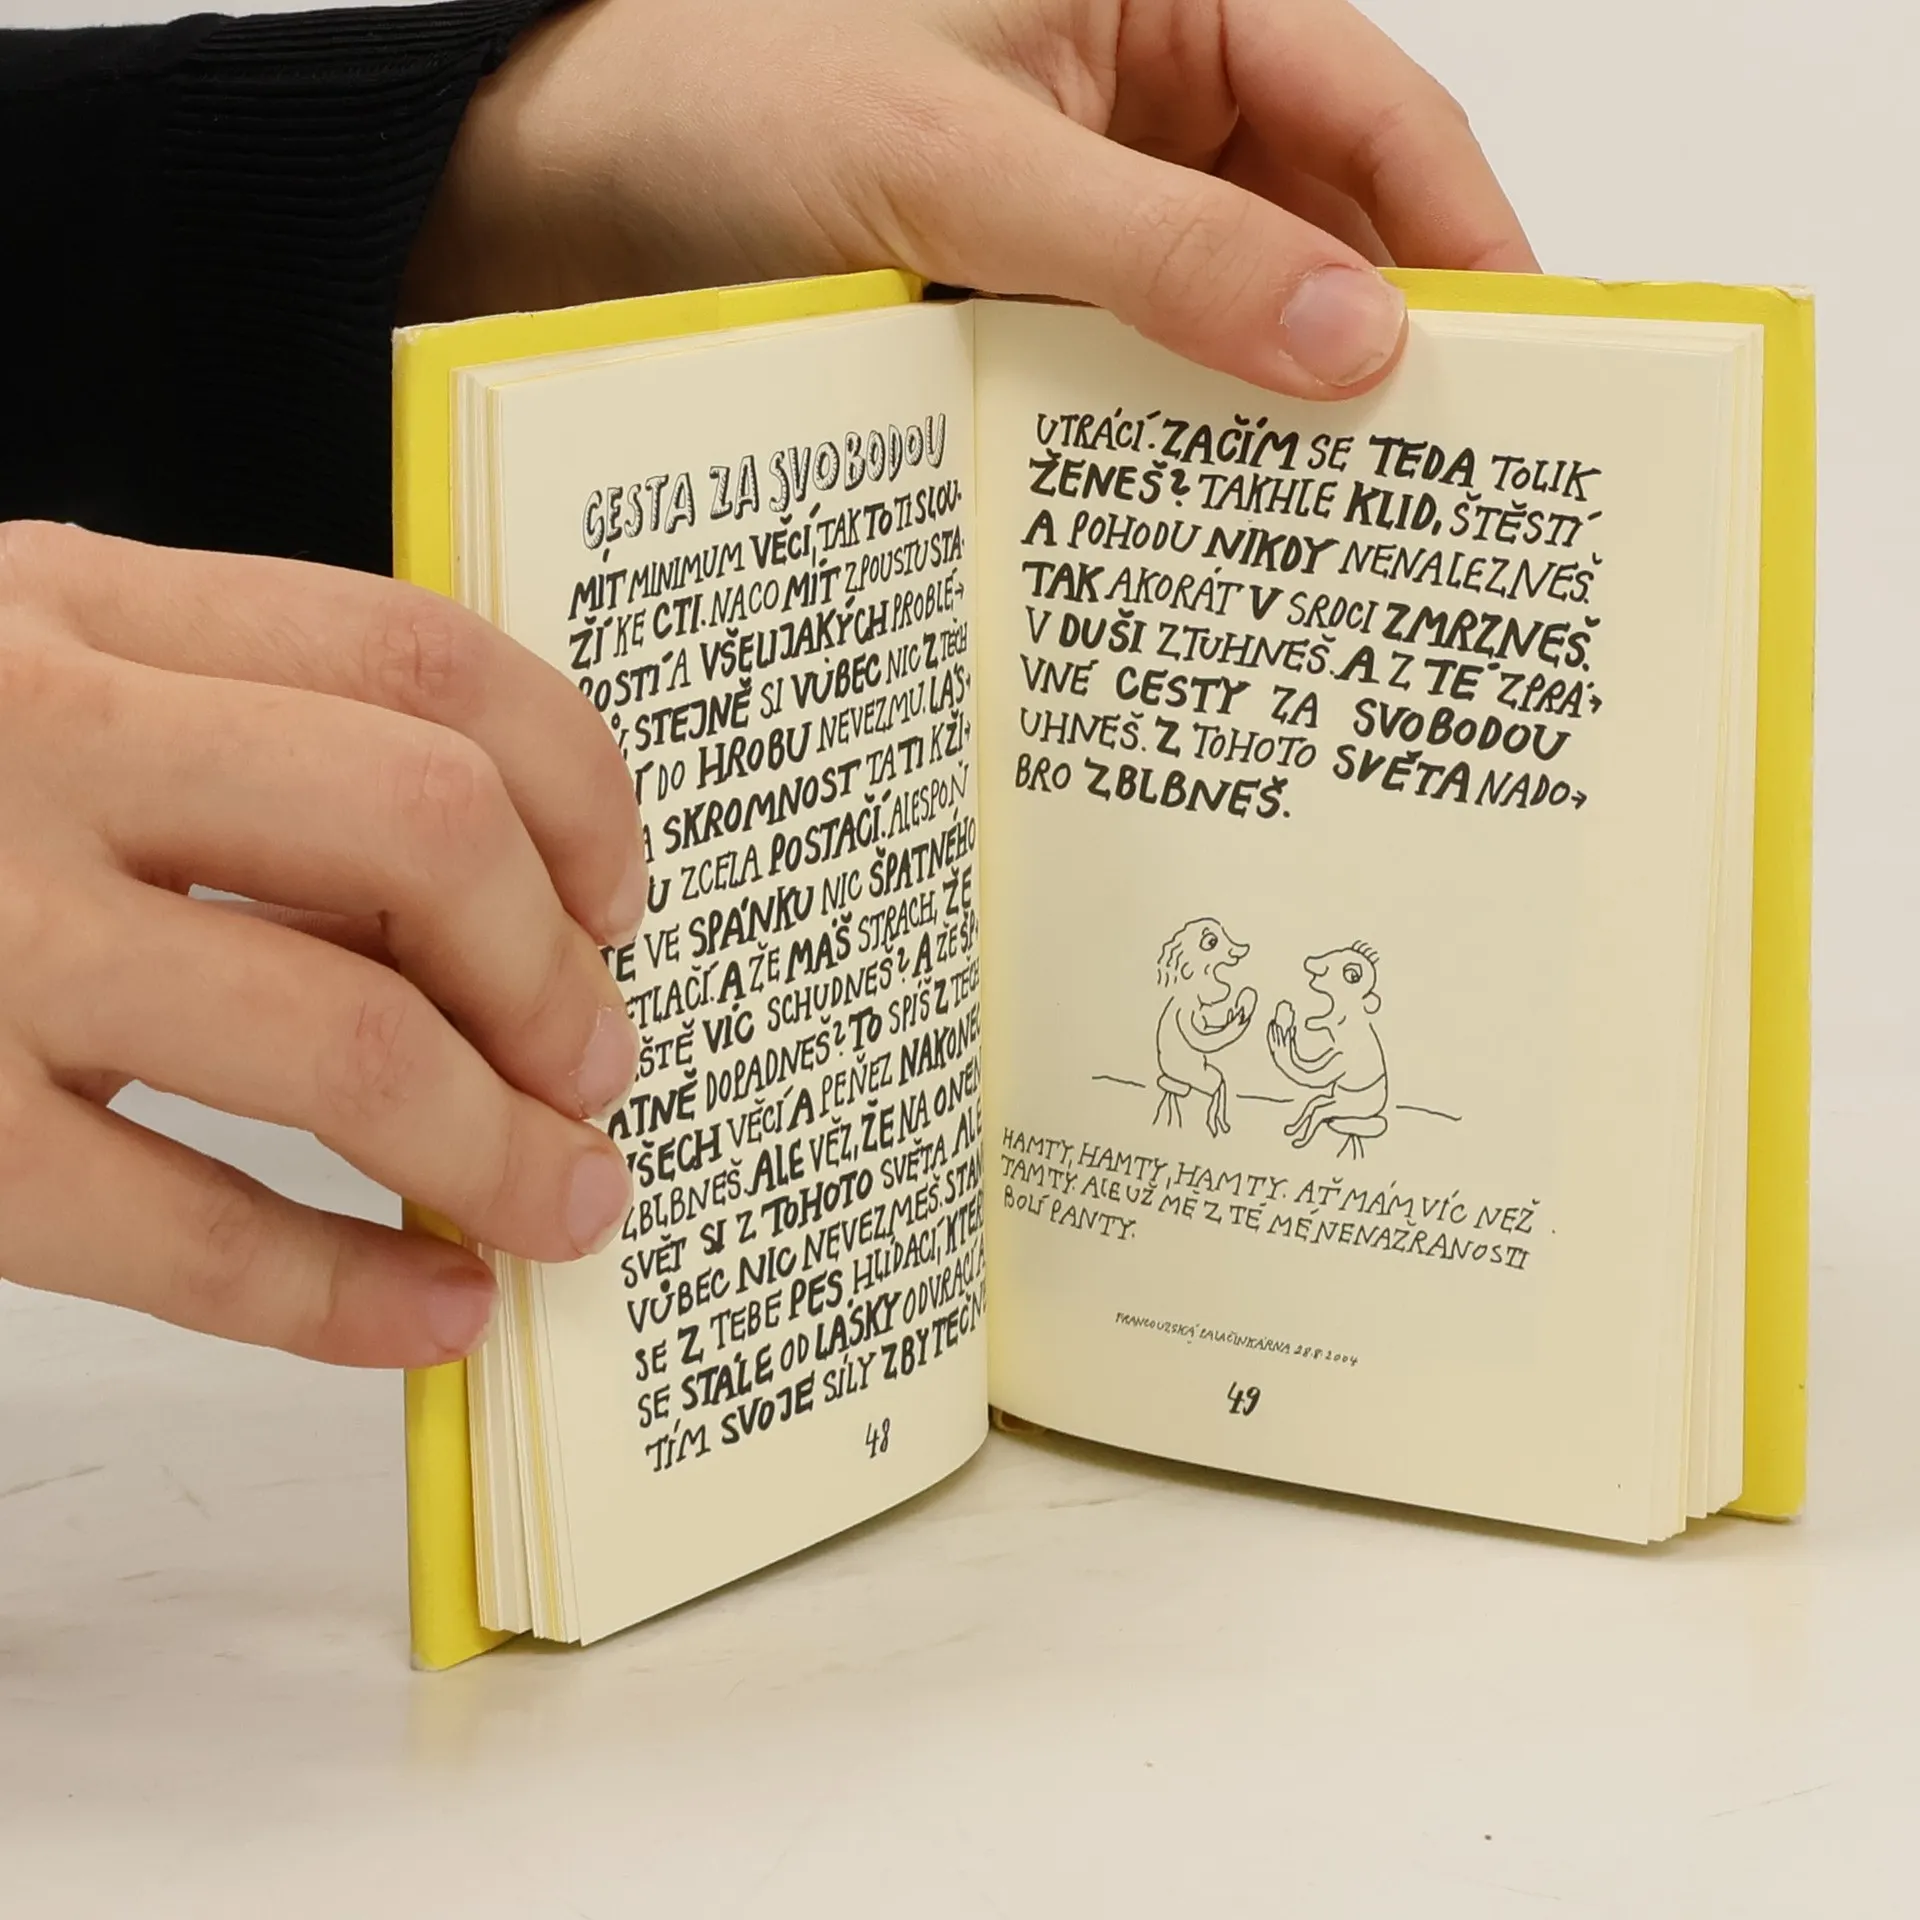 CESTA ZA SVOBODOU
MÍT MINIMUM VĚCÍ, TAK TO TI SLOU-
ŽÍ KE CTI. NACO MÍT ZPOUSTU STA-
ROSTÍ A VŠELIJAKÝCH PROBLÉ→
STEJNĚ SI VŮBEC NIC Z TĚCH
DO HROBU NEVEZMU. LÁS-
A SKROMNOST TA TI K ŽI→
U ZCELA POSTAČÍ. ALESPOŇ
TĚ VE SPÁNKU NIC ŠPATNÉHO
ETLAČÍ. A ŽE MÁŠ STRACH, ŽE
EŠTĚ VÍC SCHUDNEŠ? A ŽE ŠP-
ATNĚ DOPADNEŠ? TO SPÍŠ Z TĚCH
VŠECH VĚCÍ A PENĚZ NAKONEC
ZBLBNEŠ. ALE VĚZ, ŽE NA ONEN
SVĚT SI Z TOHOTO SVĚTA ALE
VŮBEC NIC NEVEZMEŠ. STAN
SE Z TEBE PES HLÍDACÍ, KTER
SE STÁLE OD LÁSKY ODVRACÍ A
TÍM SVOJE SÍLY ZBYTEČNĚ
48
UTRÁCÍ. ZAČÍM SE TEDA TOLIK
ŽENEŠ? TAKHLE KLID, ŠTĚSTÍ
A POHODU NIKDY NENALEZNEŠ.
TAK AKORÁT V SRDCI ZMRZNEŠ.
V DUŠI ZTUHNEŠ. A Z TÉ ZPRÁ→
VNÉ CESTY ZA SVOBODOU
UHNEŠ. Z TOHOTO SVĚTA NADO→
BRO ZBLBNEŠ.
HAMTY, HAMTY, HAMTY. AŤ MÁM VÍC NEŽ
TAMTY. ALE UŽ MĚ Z TÉ MÉ NENAŽRANOSTI
BOLÍ PANTY.
FRANCOUZSKÁ PALAČINKÁRNA 28.8.2004
49